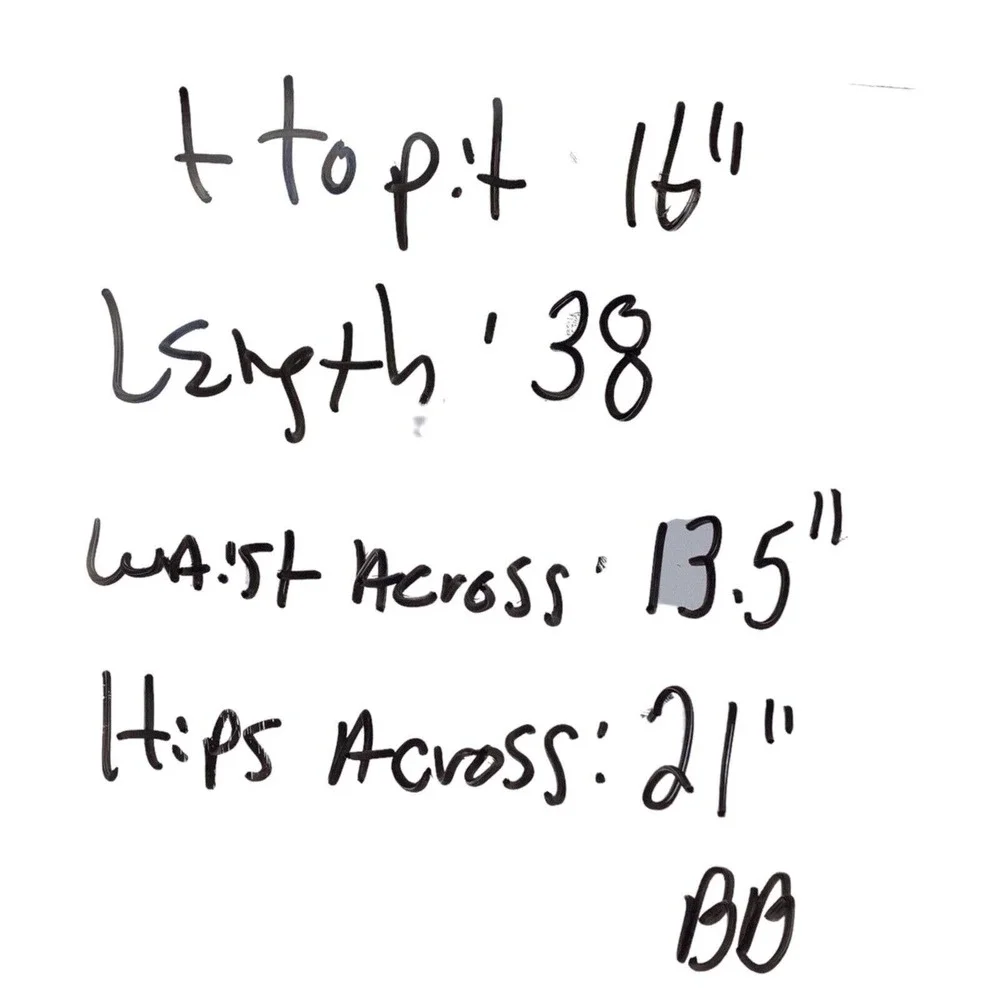 t to pit 16"
Length: 38
Waist Across: 13.5"
Hips Across: 21"
BB